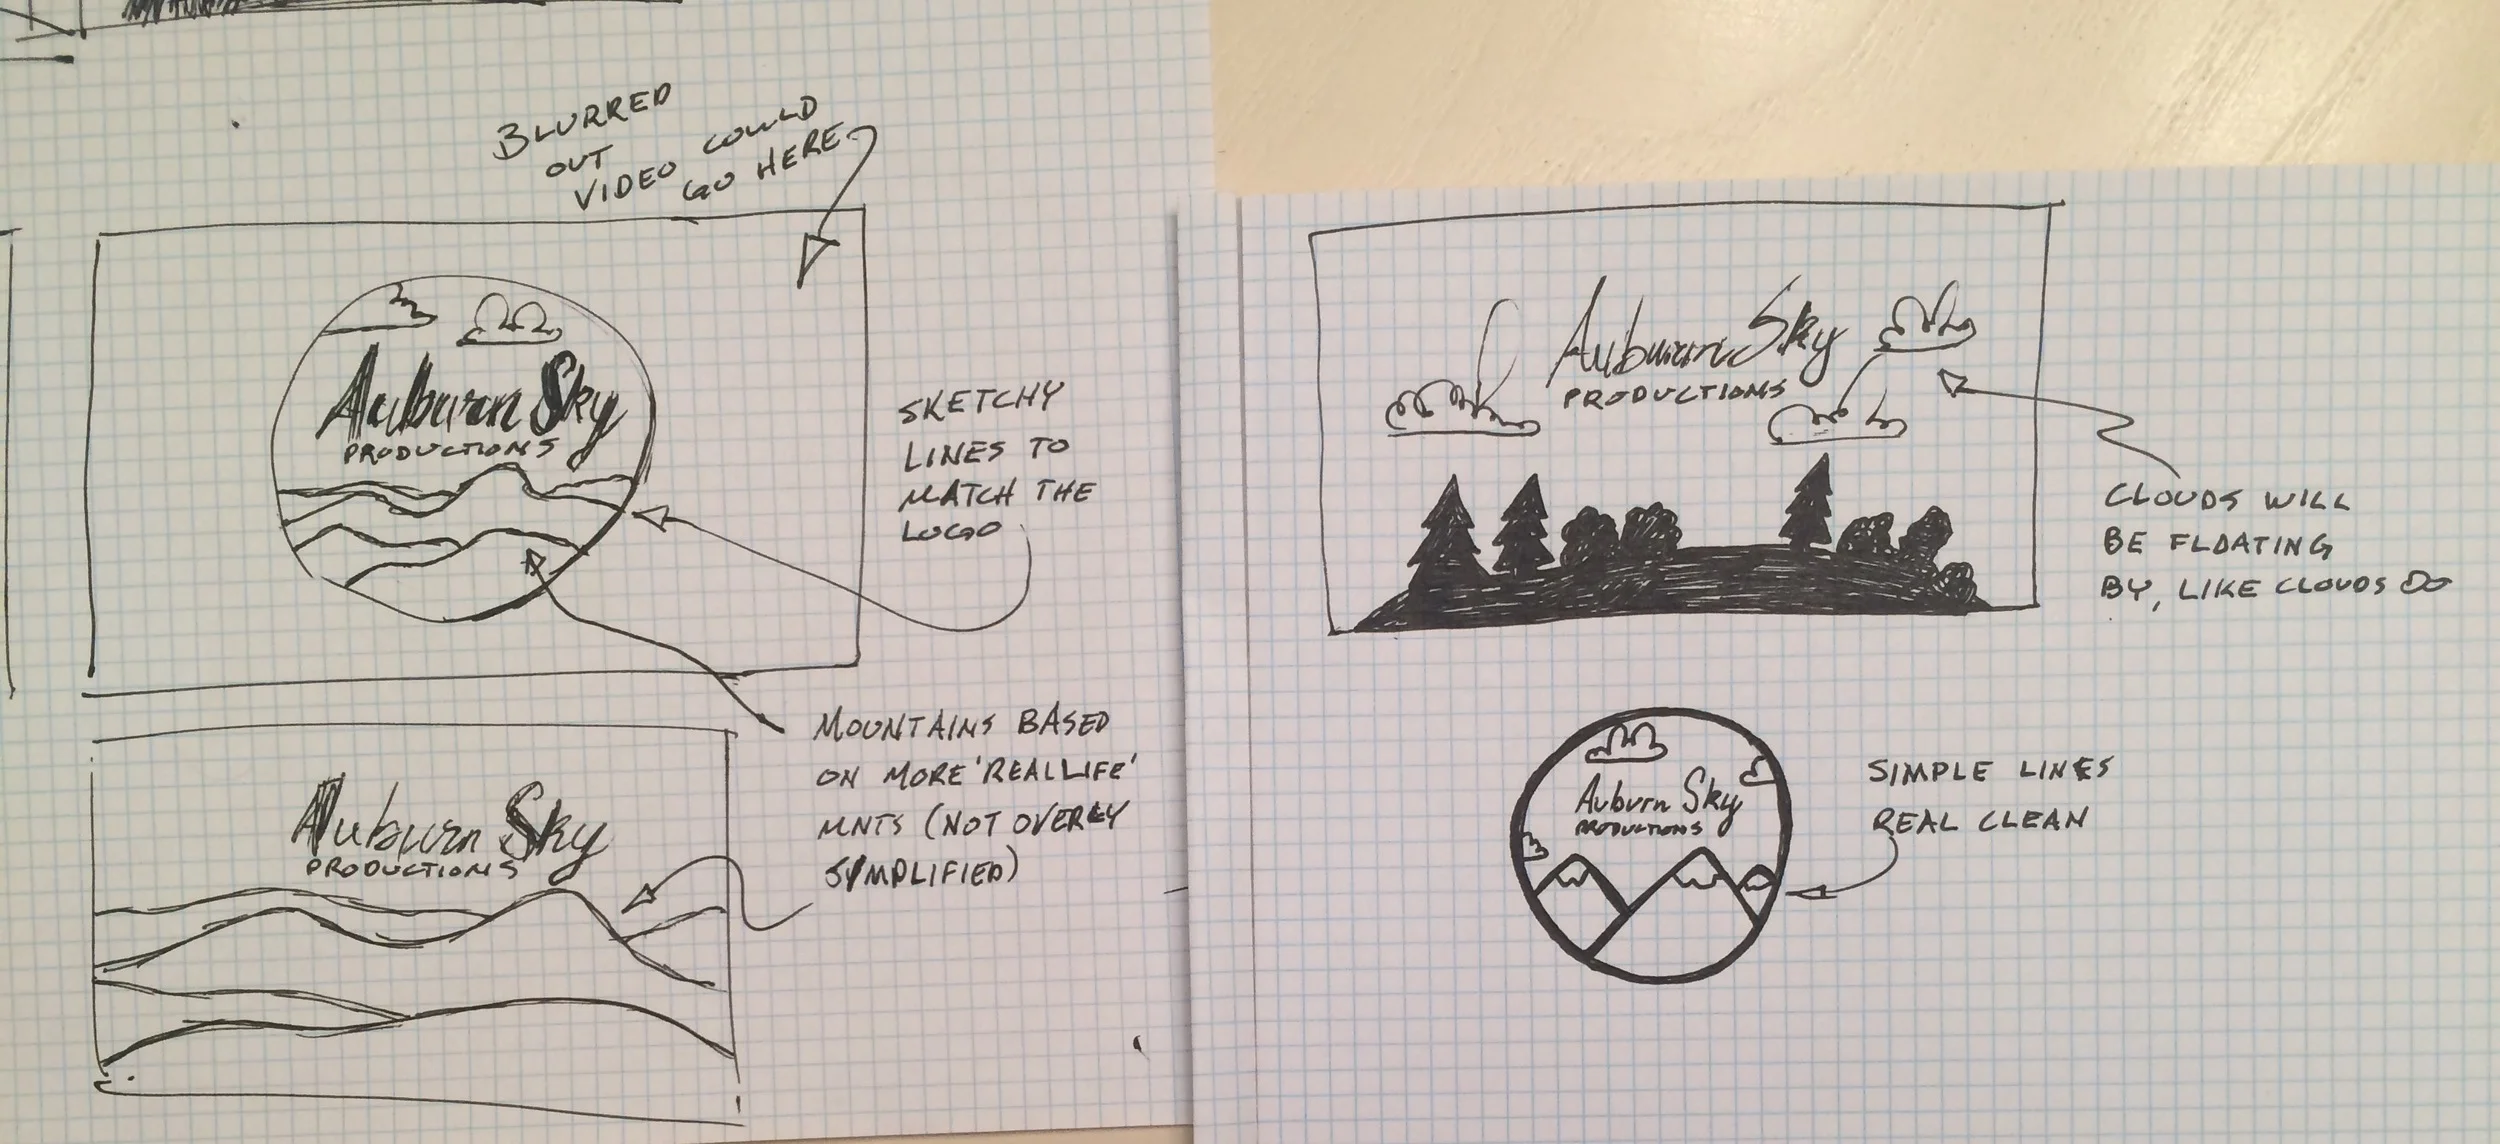 BLURRED
OUT
VIDEO COULD
GO HERE
Auburn Sky
PRODUCTIONS
SKETCHY
LINES TO
MATCH THE
LOGO
MOUNTAINS BASED
ON MORE 'REAL LIFE'
MNTS (NOT OVERLY
SYMPLIFIED)
Auburn Sky
PRODUCTIONS
Auburn Sky
PRODUCTIONS
CLOUDS WILL
BE FLOATING
BY, LIKE CLOUDS DO
Auburn Sky
PRODUCTIONS
SIMPLE LINES
REAL CLEAN